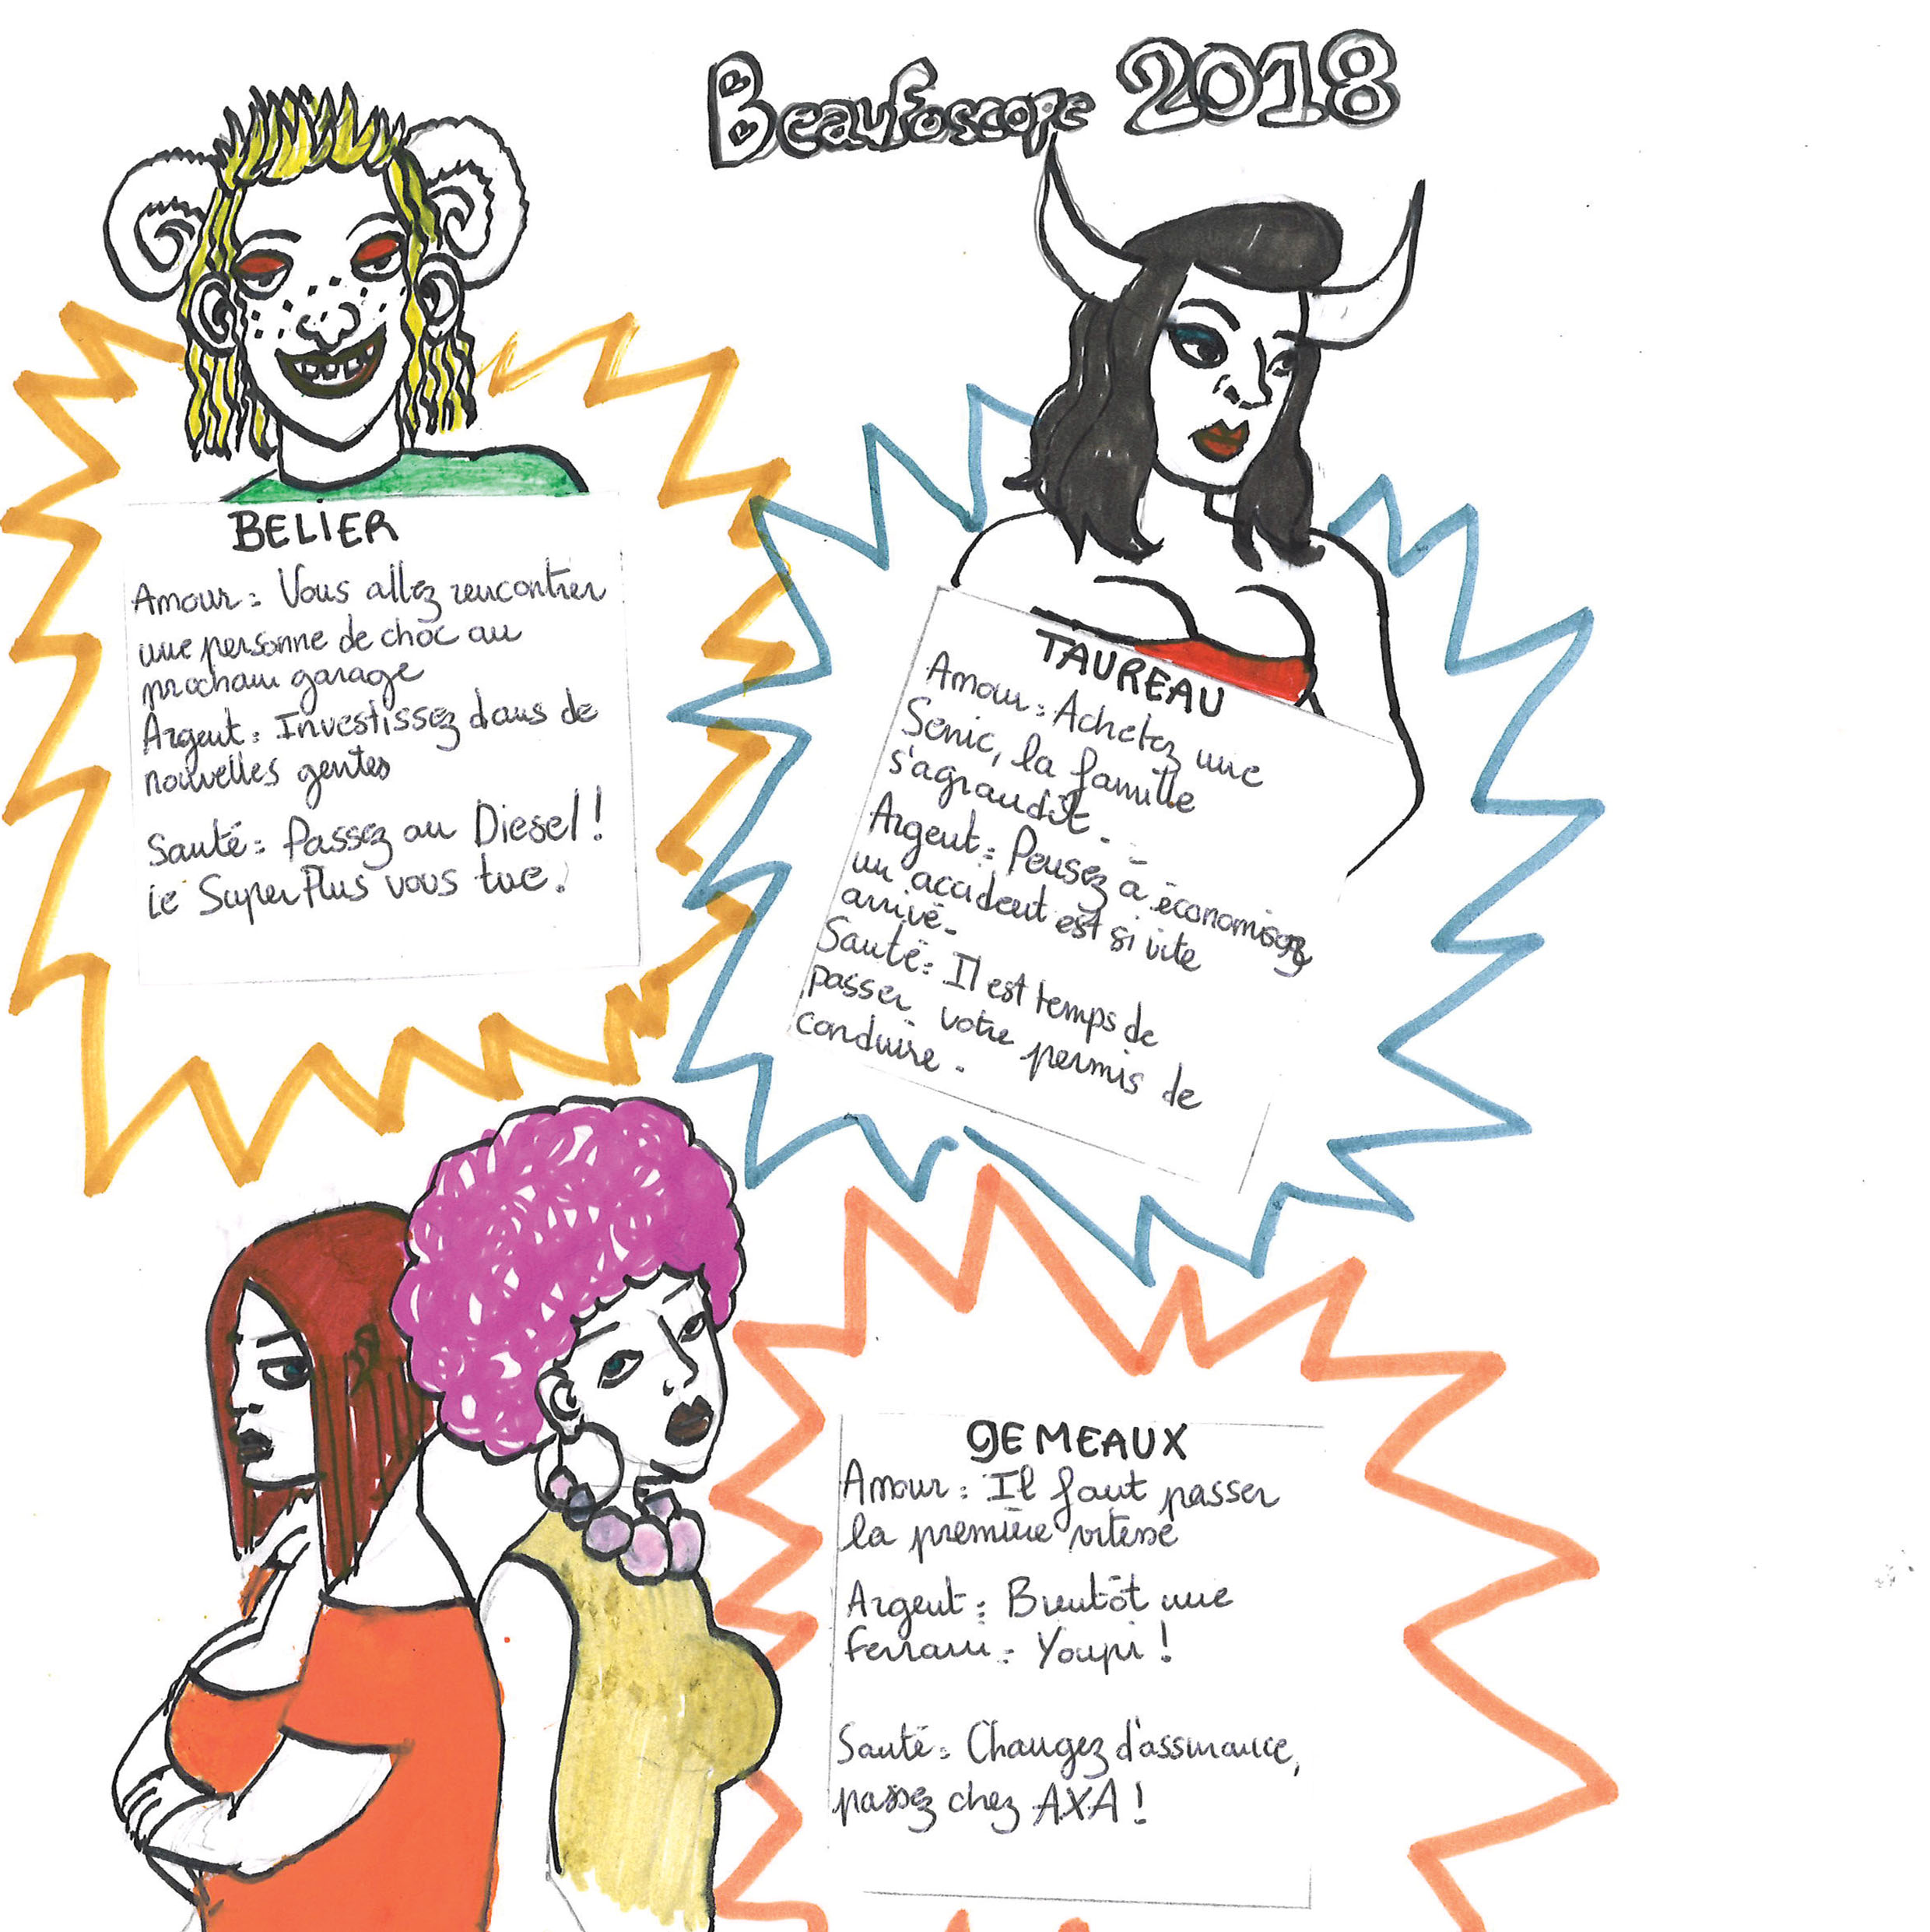 Beaufoscope 2018
BELIER
Amour : Vous allez rencontrer
une personne de choc au
prochain garage
Argent : Investissez dans de
nouvelles gentes
Santé : Passez au Diesel !
Le SuperPlus vous tue.
TAUREAU
Amour : Achetez une
Senic, la famille
s'agrandit.
Argent : Pensez à économisez
un accident est si vite
arrivé.
Santé : Il est temps de
passer votre permis de
conduire.
GEMEAUX
Amour : Il faut passer
la première vitesse
Argent : Bientôt une
Ferrari : Youpi !
Santé : Changez d'assurance,
passez chez AXA !